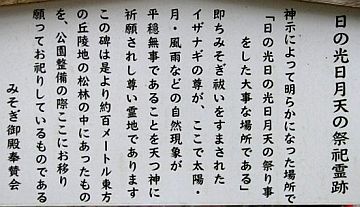 日の光日月天の祭祀霊跡
神示によって明らかになった場所で
「日の光日の光日月天の祭り事
をした大事な場所である」
即ちみそぎ祓いをすまされた
イザナギの尊が、ここで太陽・
月・風雨などの自然現象が
平穏無事であることを天つ神に
祈願されし尊い霊地であります
この碑は是より約百メートル東方
の丘陵地の松林の中にあったもの
を、公園整備の際ここにお移り
願ってお祀りしているものである
みそぎ御殿奉賛会